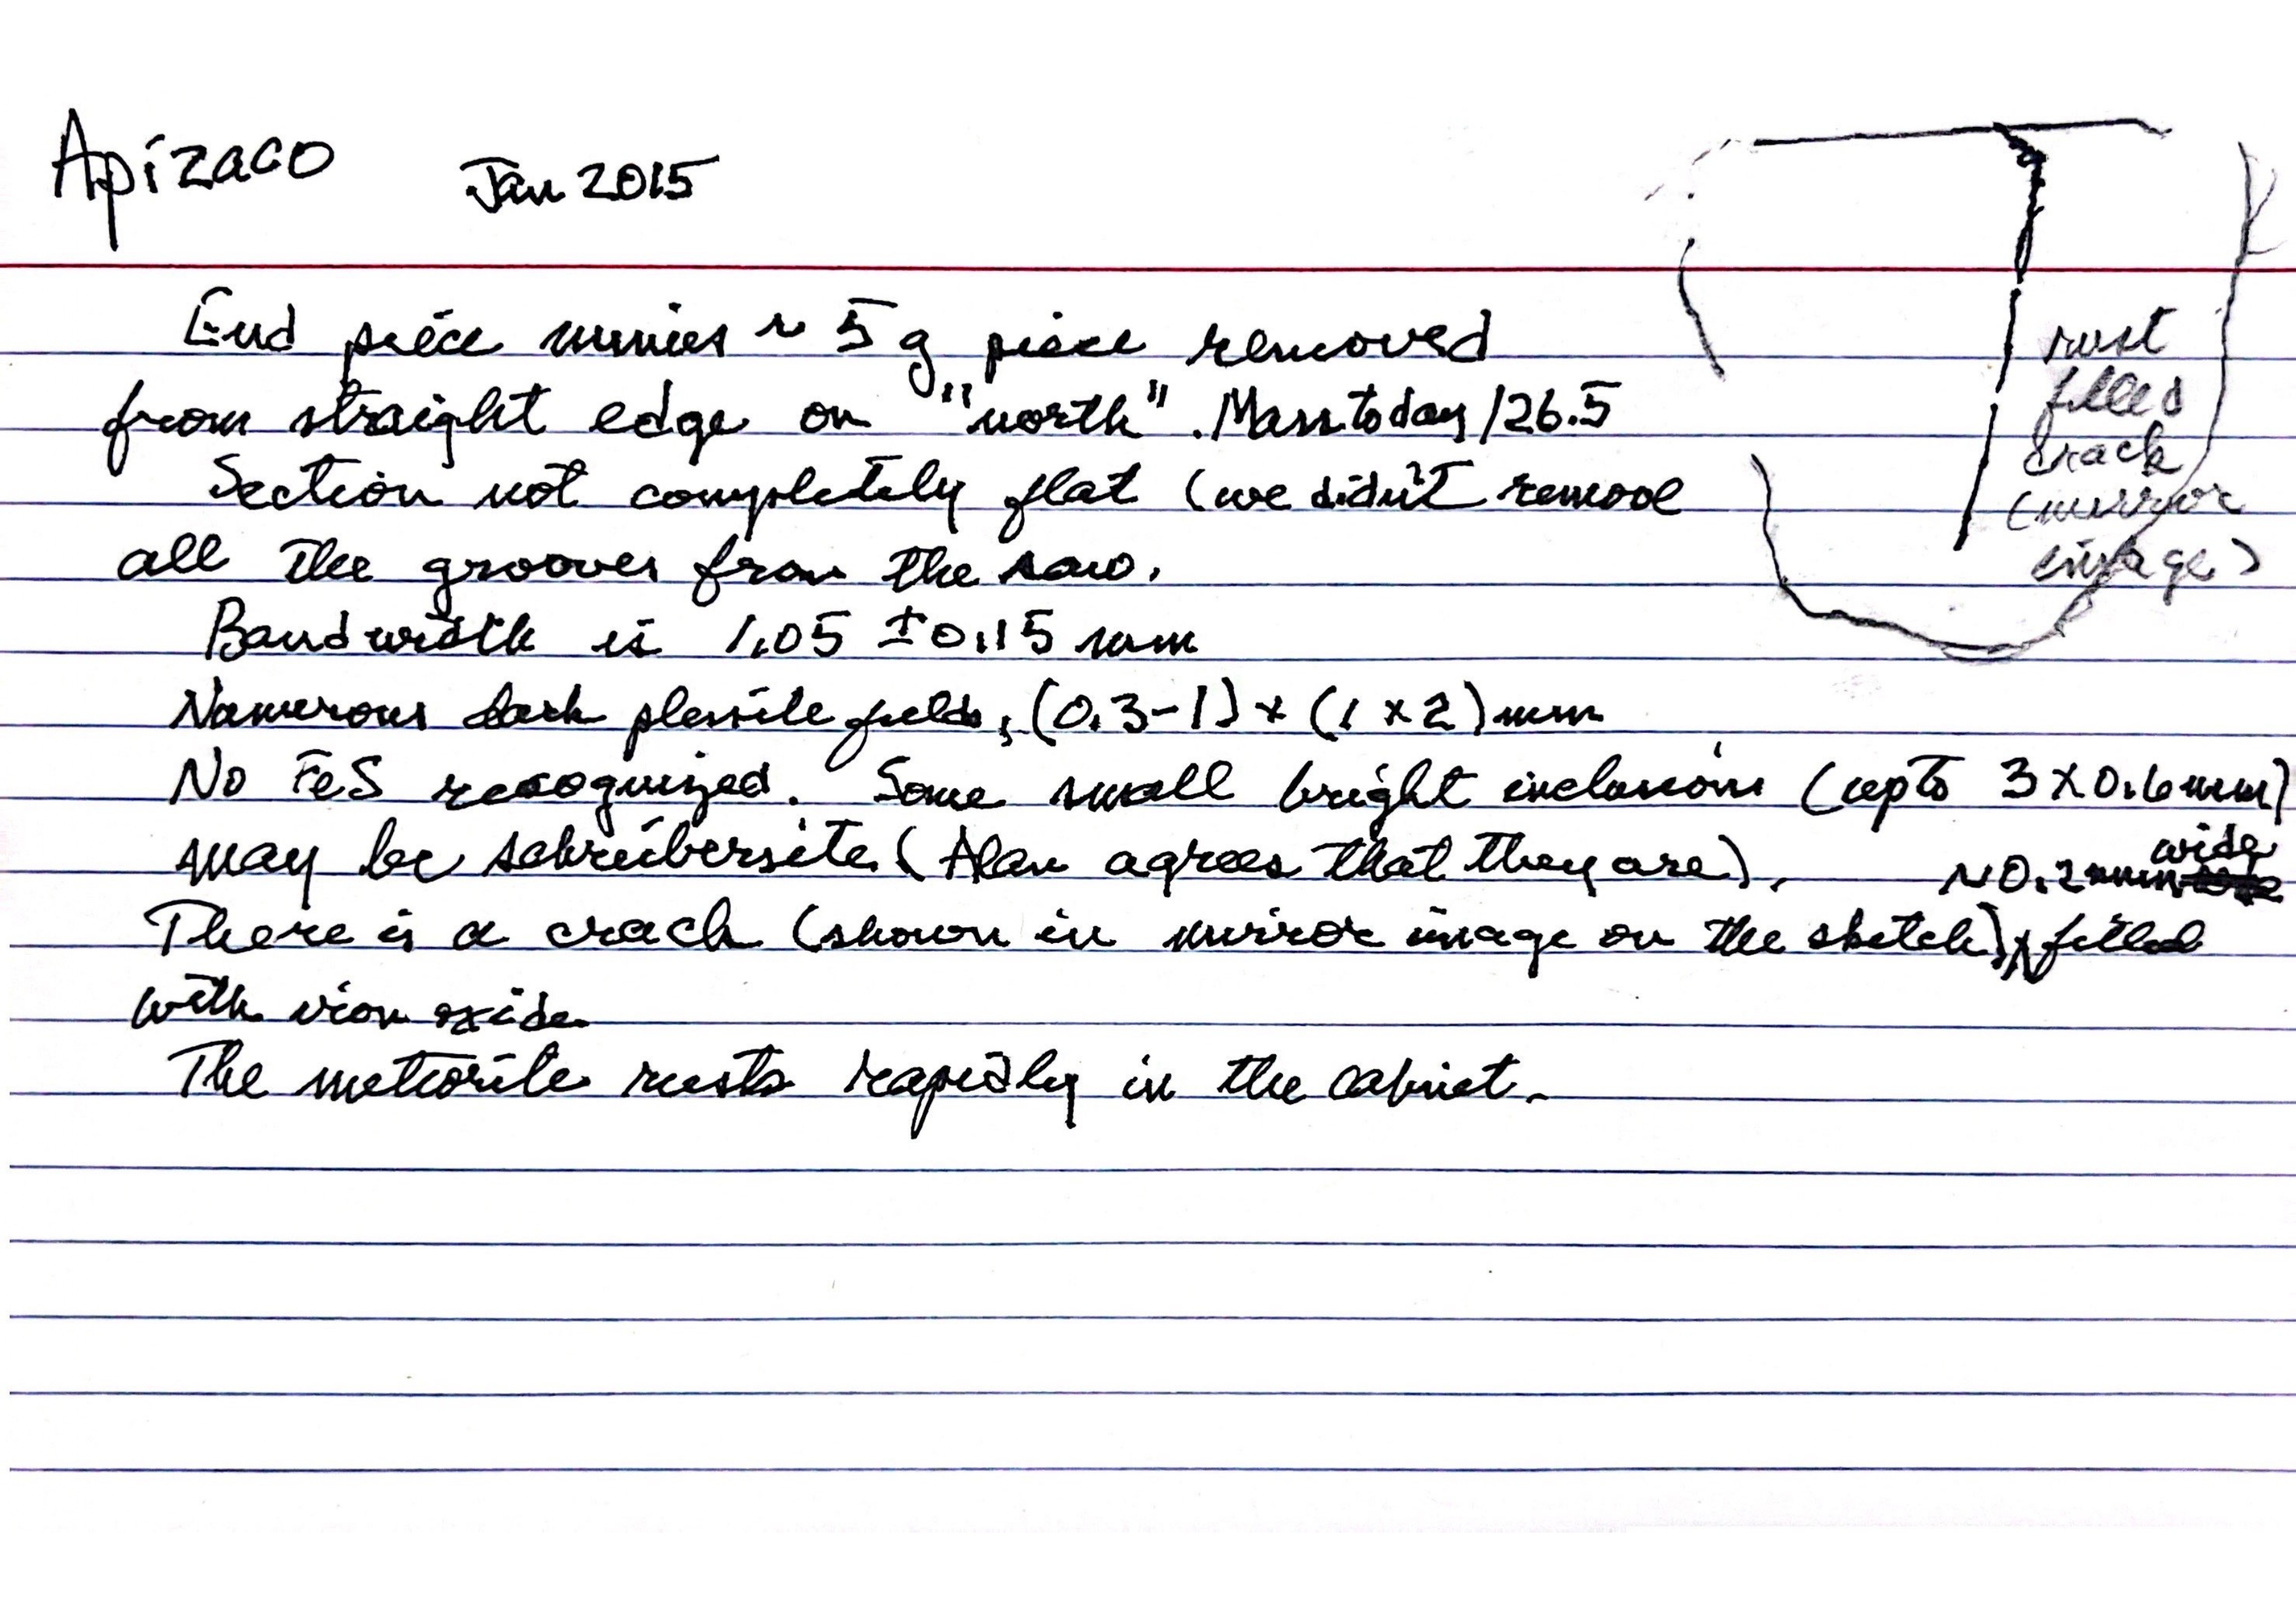 Apizaco Jan 2015
End piece minus ~ 5 g piece removed
from straight edge on "north". Mass today 126.5
Section not completely flat (we didn't remove
all the grooves from the saw.
Bandwidth is 1.05 ± 0.15 mm
Numerous dark plessite fields, (0.3-1) × (1 × 2) mm
No FeS recognized. Some small bright inclusions (up to 3 × 0.6 mm)
may be schreibersite (Alan agrees that they are).
~0.2 mm wide
There is a crack (shown in mirror image on the sketch) filled
with iron oxide
The meteorite rusts rapidly in the cabinet.
rust
filled
crack
(mirror
image)